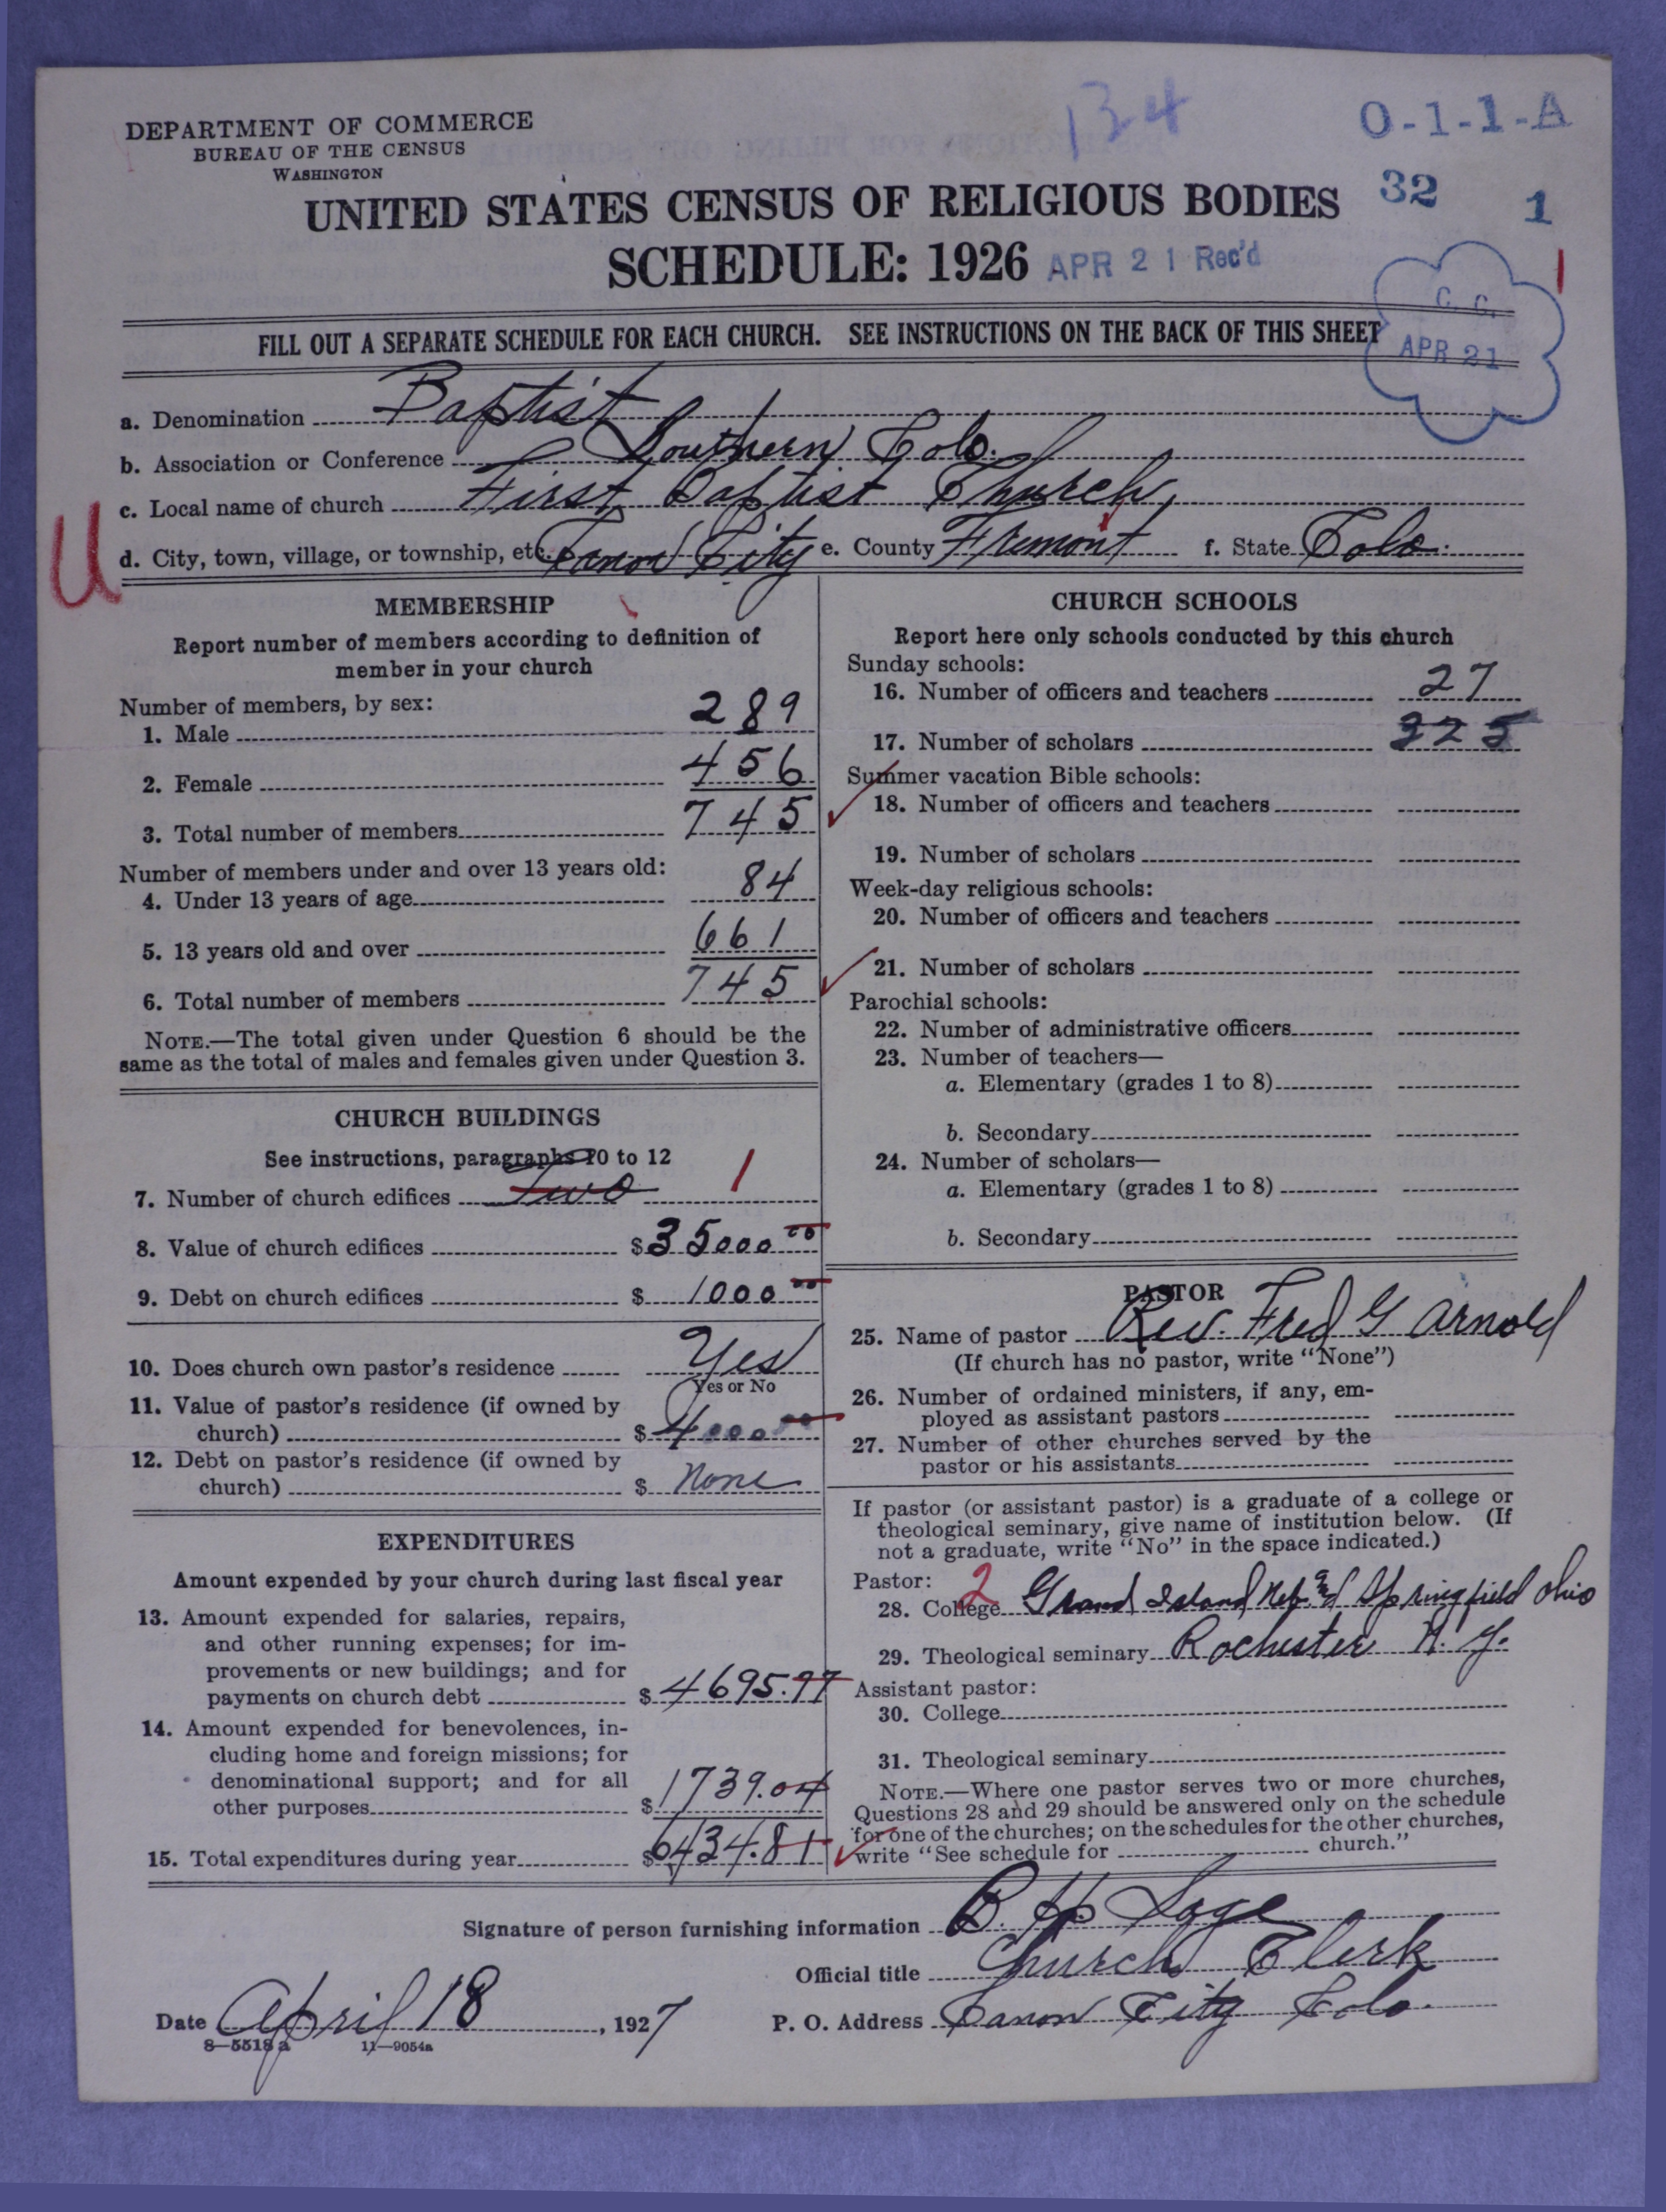 DEPARTMENT OF COMMERCE
BUREAU OF THE CENSUS
WASHINGTON
134
O-1-1-A
32 1
UNITED STATES CENSUS OF RELIGIOUS BODIES
SCHEDULE: 1926
APR 21 Rec'd
C. C.
APR 21
FILL OUT A SEPARATE SCHEDULE FOR EACH CHURCH. SEE INSTRUCTIONS ON THE BACK OF THIS SHEET
a. Denomination Baptist
b. Association or Conference Southern Colo.
c. Local name of church First Baptist Church,
U
d. City, town, village, or township, etc. Canon City e. County Fremont f. State Colo.
MEMBERSHIP
Report number of members according to definition of
member in your church
Number of members, by sex:
1. Male 289
2. Female 456
3. Total number of members 745
Number of members under and over 13 years old:
4. Under 13 years of age 84
5. 13 years old and over 661
6. Total number of members 745
NOTE.—The total given under Question 6 should be the
same as the total of males and females given under Question 3.
CHURCH BUILDINGS
See instructions, paragraphs 10 to 12
7. Number of church edifices Two 1
8. Value of church edifices $35000 00
9. Debt on church edifices $1000 00
10. Does church own pastor's residence Yes
Yes or No
11. Value of pastor's residence (if owned by
church) $4000 00
12. Debt on pastor's residence (if owned by
church) $ None
EXPENDITURES
Amount expended by your church during last fiscal year
13. Amount expended for salaries, repairs,
and other running expenses; for im-
provements or new buildings; and for
payments on church debt $4695.77
14. Amount expended for benevolences, in-
cluding home and foreign missions; for
denominational support; and for all
other purposes $1739.04
15. Total expenditures during year $6434.81
CHURCH SCHOOLS
Report here only schools conducted by this church
Sunday schools:
16. Number of officers and teachers 27
17. Number of scholars 325
Summer vacation Bible schools:
18. Number of officers and teachers
19. Number of scholars
Week-day religious schools:
20. Number of officers and teachers
21. Number of scholars
Parochial schools:
22. Number of administrative officers
23. Number of teachers—
a. Elementary (grades 1 to 8)
b. Secondary
24. Number of scholars—
a. Elementary (grades 1 to 8)
b. Secondary
PASTOR
25. Name of pastor Rev. Fred G Arnold
(If church has no pastor, write "None")
26. Number of ordained ministers, if any, em-
ployed as assistant pastors
27. Number of other churches served by the
pastor or his assistants
If pastor (or assistant pastor) is a graduate of a college or
theological seminary, give name of institution below. (If
not a graduate, write "No" in the space indicated.)
Pastor: 2
28. College Grand Island Neb. and Springfield Ohio
29. Theological seminary Rochester N. Y.
Assistant pastor:
30. College
31. Theological seminary
NOTE.—Where one pastor serves two or more churches,
Questions 28 and 29 should be answered only on the schedule
for one of the churches; on the schedules for the other churches,
write "See schedule for church."
Signature of person furnishing information B. H. Sage
Official title Church Clerk
Date April 18, 1927 P. O. Address Canon City Colo.
8—5518 a 11—9054a